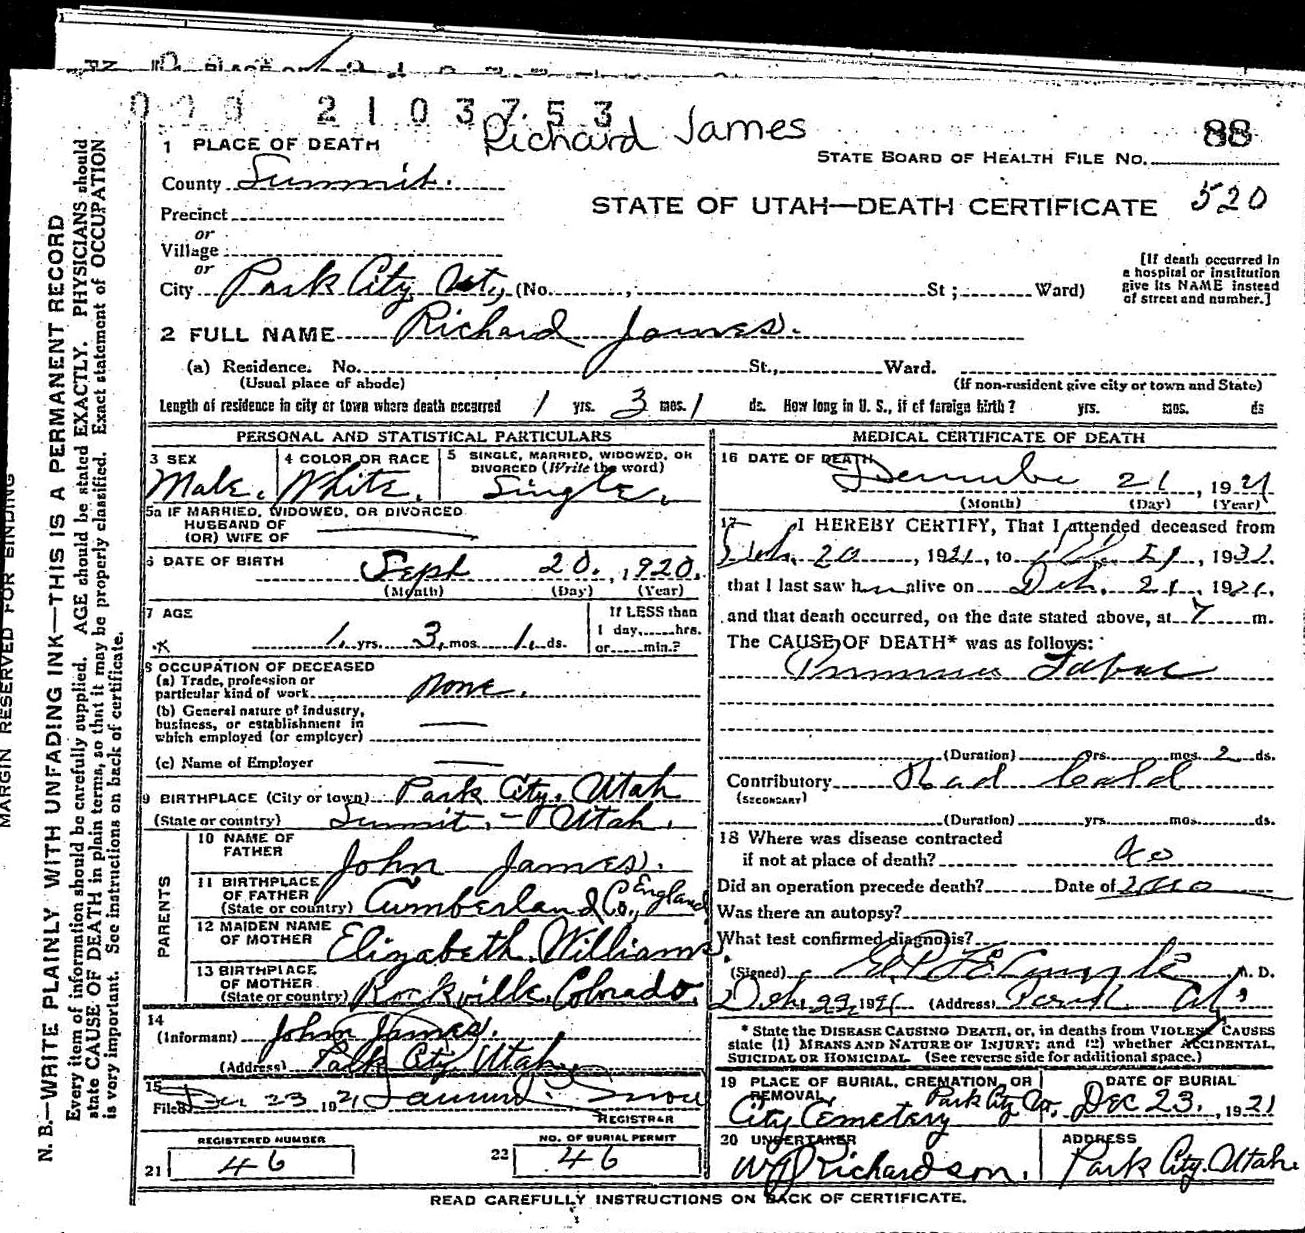 000 2103753
Richard James
88
1 PLACE OF DEATH
STATE BOARD OF HEALTH FILE NO.
County Summit.
STATE OF UTAH—DEATH CERTIFICATE 520
Precinct
or
Village
or
City Park City Ut, (No. , St ; Ward)
[If death occurred in
a hospital or institution
give its NAME instead
of street and number.]
2 FULL NAME Richard James.
(a) Residence. No. St., Ward.
(Usual place of abode) (If non-resident give city or town and State)
Length of residence in city or town where death occurred 1 yrs. 3 mos. 1 ds. How long in U. S., if of foreign birth? yrs. mos. ds
PERSONAL AND STATISTICAL PARTICULARS
3 SEX Male.
4 COLOR OR RACE White.
5 SINGLE, MARRIED, WIDOWED, OR
DIVORCED (Write the word)
Single.
5a IF MARRIED, WIDOWED, OR DIVORCED
HUSBAND OF
(OR) WIFE OF
6 DATE OF BIRTH Sept 20., 1920.
(Month) (Day) (Year)
7 AGE
1. yrs. 3. mos. 1. ds.
If LESS than
1 day, hrs.
or min.?
8 OCCUPATION OF DECEASED
(a) Trade, profession or
particular kind of work none.
(b) General nature of industry,
business, or establishment in
which employed (or employer)
(c) Name of Employer
9 BIRTHPLACE (City or town) Park City, Utah
(State or country) Summit.- Utah.
PARENTS
10 NAME OF
FATHER John James.
11 BIRTHPLACE
OF FATHER
(State or country) Cumberland Co., England
12 MAIDEN NAME
OF MOTHER Elizabeth Williams.
13 BIRTHPLACE
OF MOTHER
(State or country) Rockville, Colorado
14
(Informant) John James.
(Address) Park City Utah.
15
Filed Dec 23 1921
REGISTRAR
REGISTERED NUMBER
21 46
NO. OF BURIAL PERMIT
22 46
MEDICAL CERTIFICATE OF DEATH
16 DATE OF DEATH
21, 1921
(Month) (Day) (Year)
17 I HEREBY CERTIFY, That I attended deceased from
20, 1921, to 21, 1921.
that I last saw h alive on Dec. 21, 1921.
and that death occurred, on the date stated above, at 7 m.
The CAUSE OF DEATH* was as follows:
(Duration) yrs. mos. 2 ds.
Contributory Bad Cold
(SECONDARY)
(Duration) yrs. mos. ds.
18 Where was disease contracted
if not at place of death?
Did an operation precede death? Date of
Was there an autopsy?
What test confirmed diagnosis?
(Signed) M. D.
22, 1921 (Address) Park
* State the DISEASE CAUSING DEATH, or, in deaths from VIOLENT CAUSES
state (1) MEANS AND NATURE OF INJURY; and (2) whether ACCIDENTAL,
SUICIDAL OR HOMICIDAL. (See reverse side for additional space.)
19 PLACE OF BURIAL, CREMATION, OR
REMOVAL
City Cemetery Park City
DATE OF BURIAL
Dec 23., 1921
20 UNDERTAKER
Richardson.
ADDRESS
Park City, Utah
READ CAREFULLY INSTRUCTIONS ON BACK OF CERTIFICATE.
MARGIN RESERVED FOR BINDING
N. B.—WRITE PLAINLY WITH UNFADING INK—THIS IS A PERMANENT RECORD
Every item of information should be carefully supplied. AGE should be stated EXACTLY. PHYSICIANS should
state CAUSE OF DEATH in plain terms, so that it may be properly classified. Exact statement of OCCUPATION
is very important. See instructions on back of certificate.